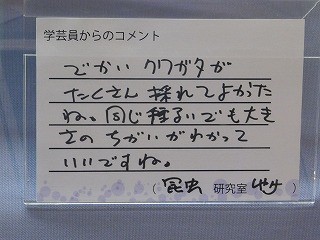 学芸員からのコメント
でかい クワガタが
たくさん 採れてよかった
ね。同じ種るいでも大き
さの ちがいがわかって
いいですね。
(昆虫 研究室 )